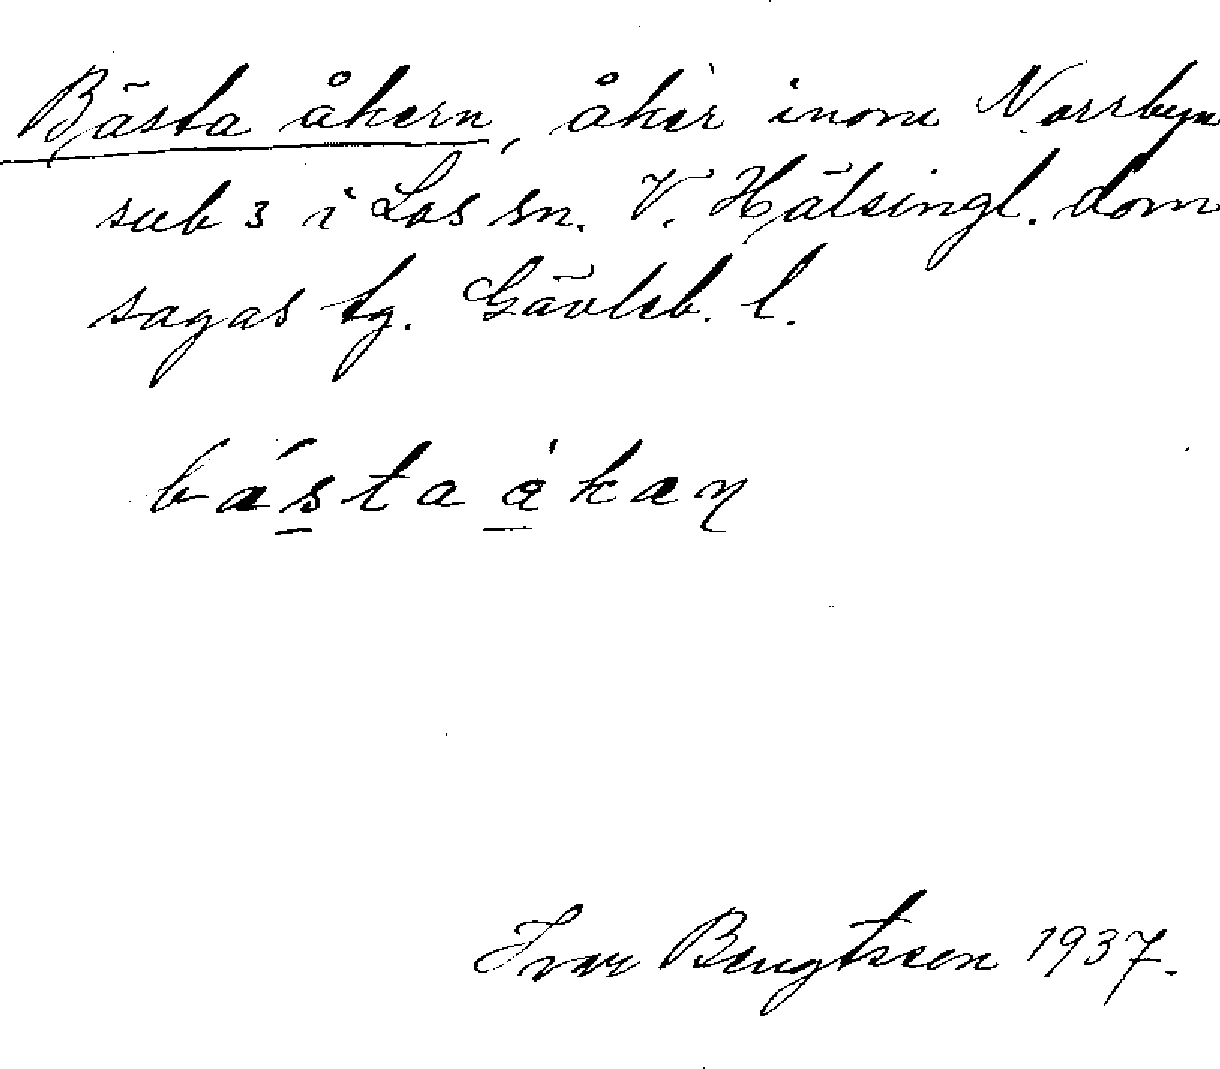 Bästa åkern, åker inom Norrbyn
sub 3 i Los sn. V. Hälsingl. dom
sagas tg. Gävleb. l.
bástaàkaɳ
Ivar Bengtsson 1937.